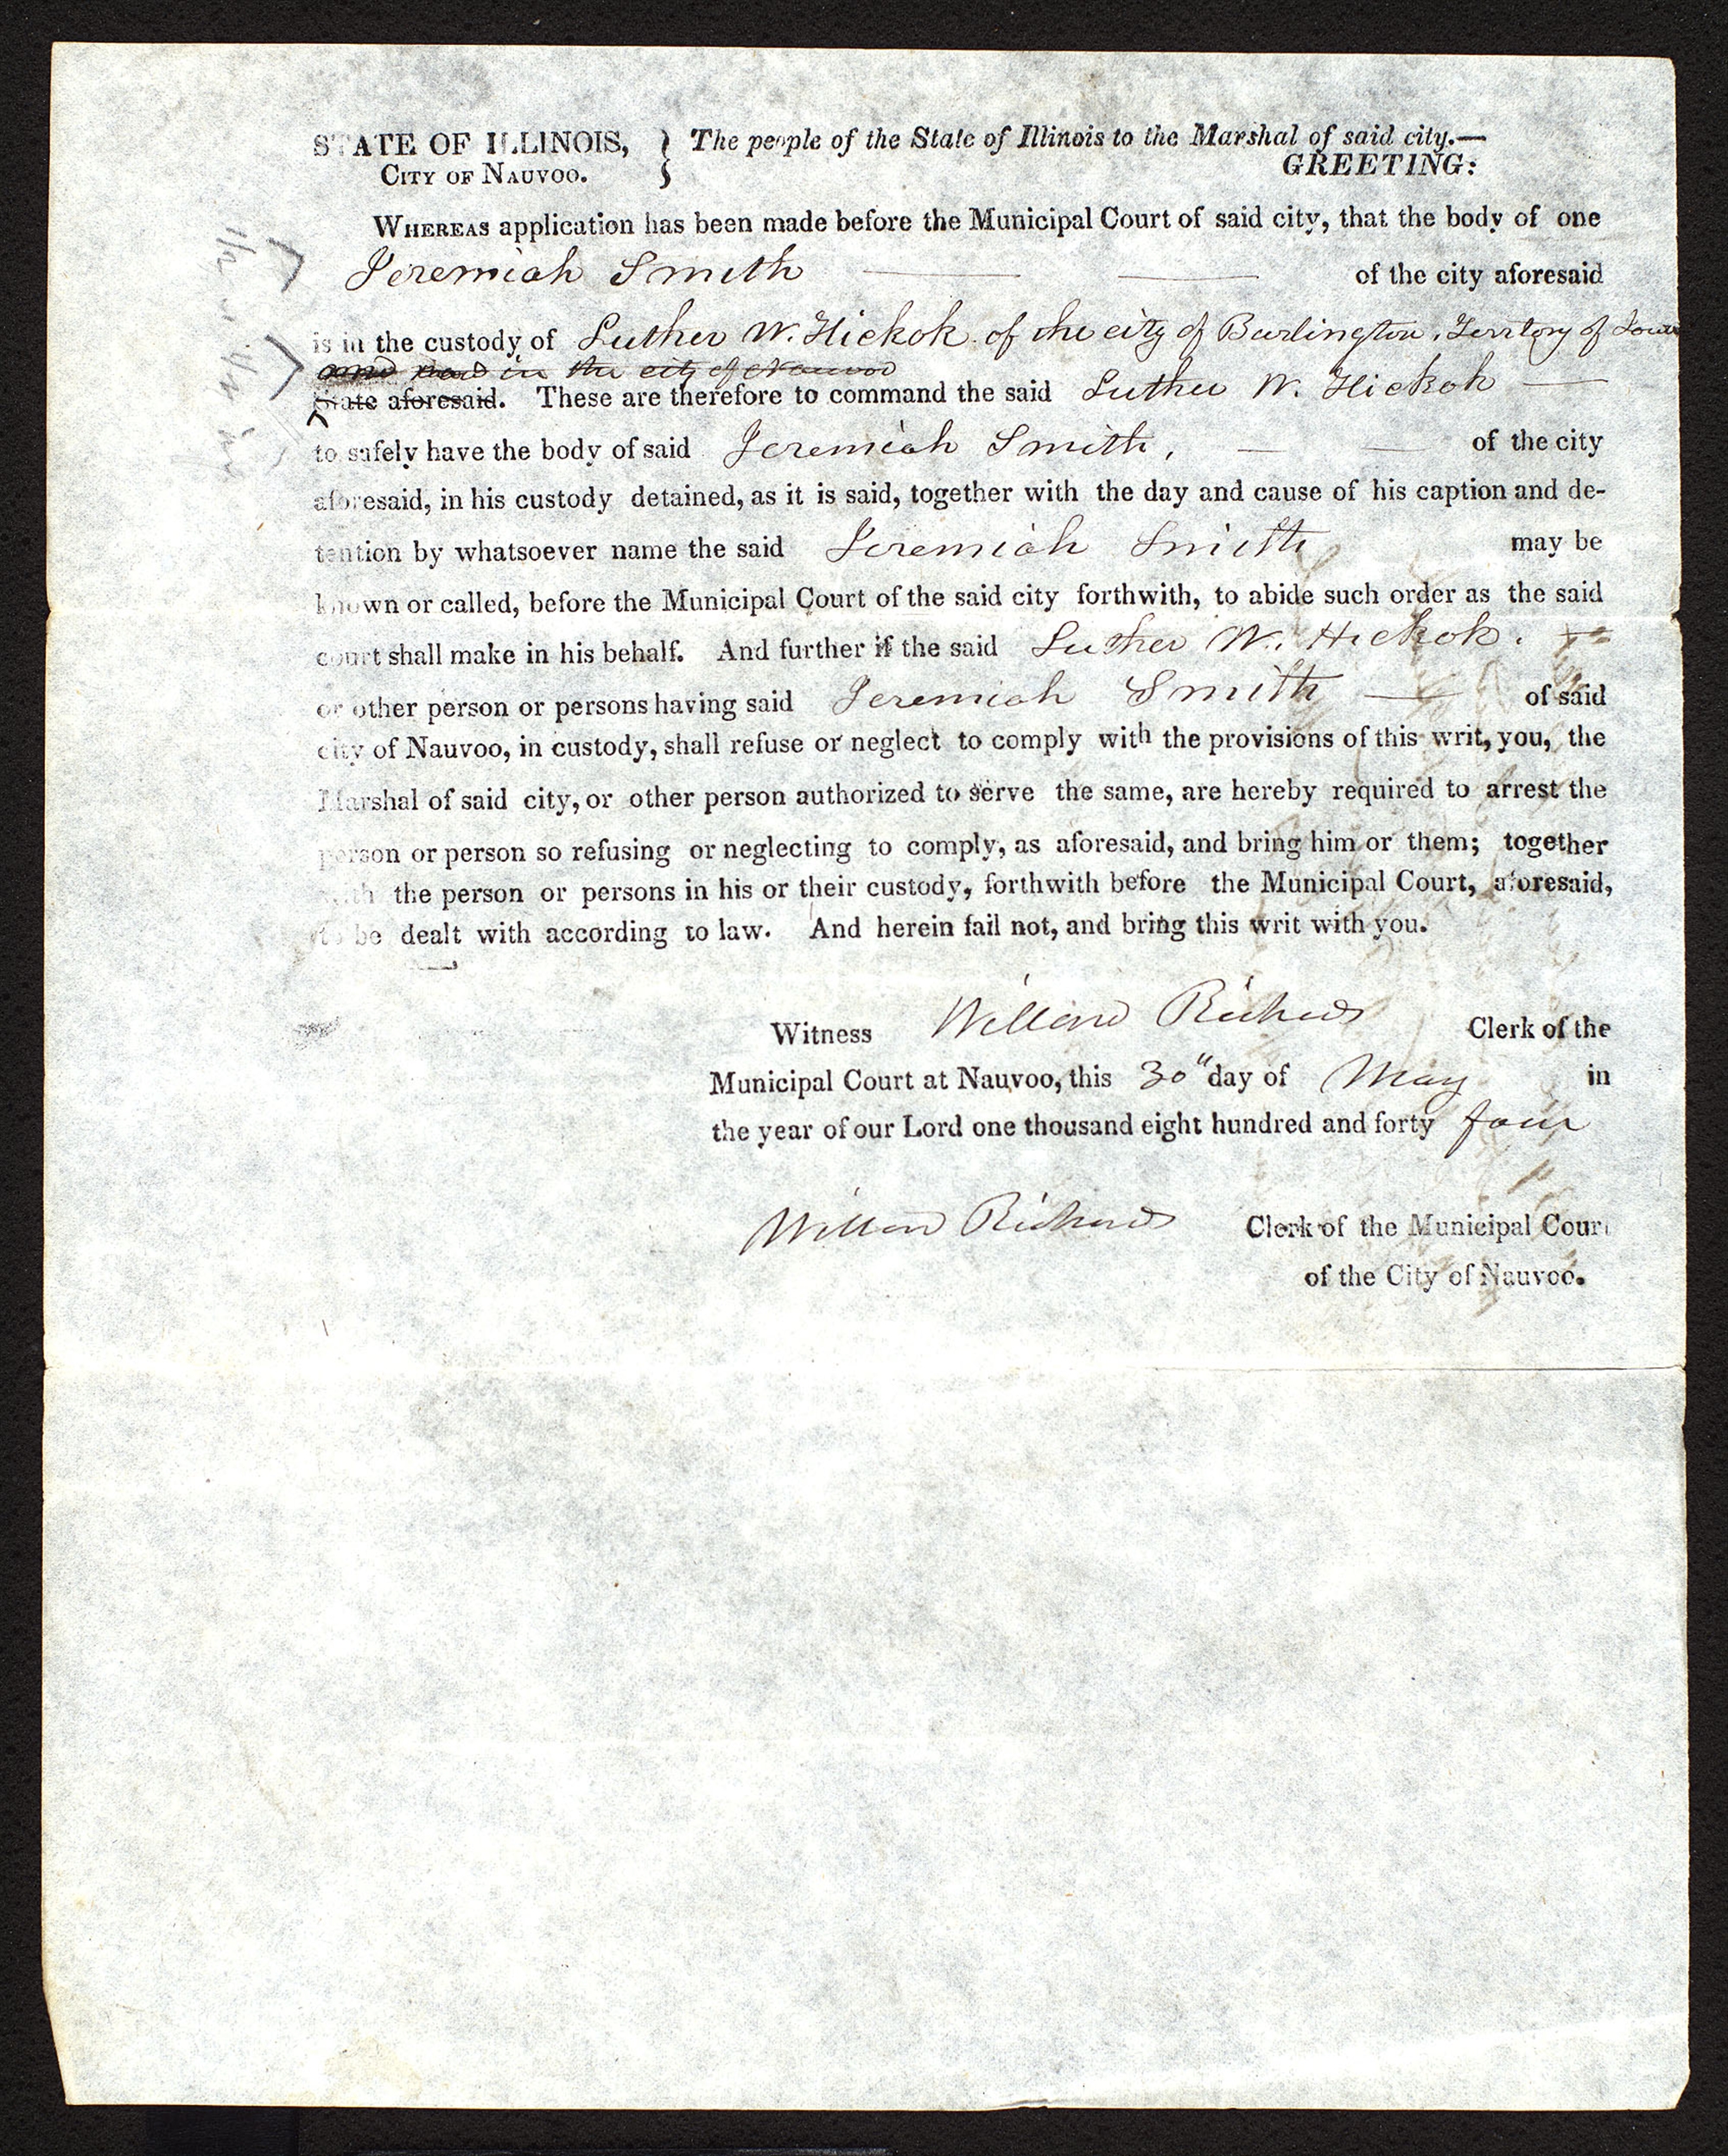 STATE OF ILLINOIS, } The people of the State of Illinois to the Marshal of said city.—
CITY OF NAUVOO. GREETING:
WHEREAS application has been made before the Municipal Court of said city, that the body of one
Jeremiah Smith of the city aforesaid
is in the custody of Luther W. Hickok of the city of Burlington, Territory of Iowa
in the city of Nauvoo
State aforesaid. These are therefore to command the said Luther W. Hickok
to safely have the body of said Jeremiah Smith, of the city
aforesaid, in his custody detained, as it is said, together with the day and cause of his caption and de-
tention by whatsoever name the said Jeremiah Smith may be
known or called, before the Municipal Court of the said city forthwith, to abide such order as the said
court shall make in his behalf. And further if the said Luther W. Hickok.
or other person or persons having said Jeremiah Smith — of said
city of Nauvoo, in custody, shall refuse or neglect to comply with the provisions of this writ, you, the
Marshal of said city, or other person authorized to serve the same, are hereby required to arrest the
person or person so refusing or neglecting to comply, as aforesaid, and bring him or them; together
with the person or persons in his or their custody, forthwith before the Municipal Court, aforesaid,
to be dealt with according to law. And herein fail not, and bring this writ with you.
Witness Willard Richards Clerk of the
Municipal Court at Nauvoo, this 30" day of May in
the year of our Lord one thousand eight hundred and forty four
Willard Richards Clerk of the Municipal Court
of the City of Nauvoo.